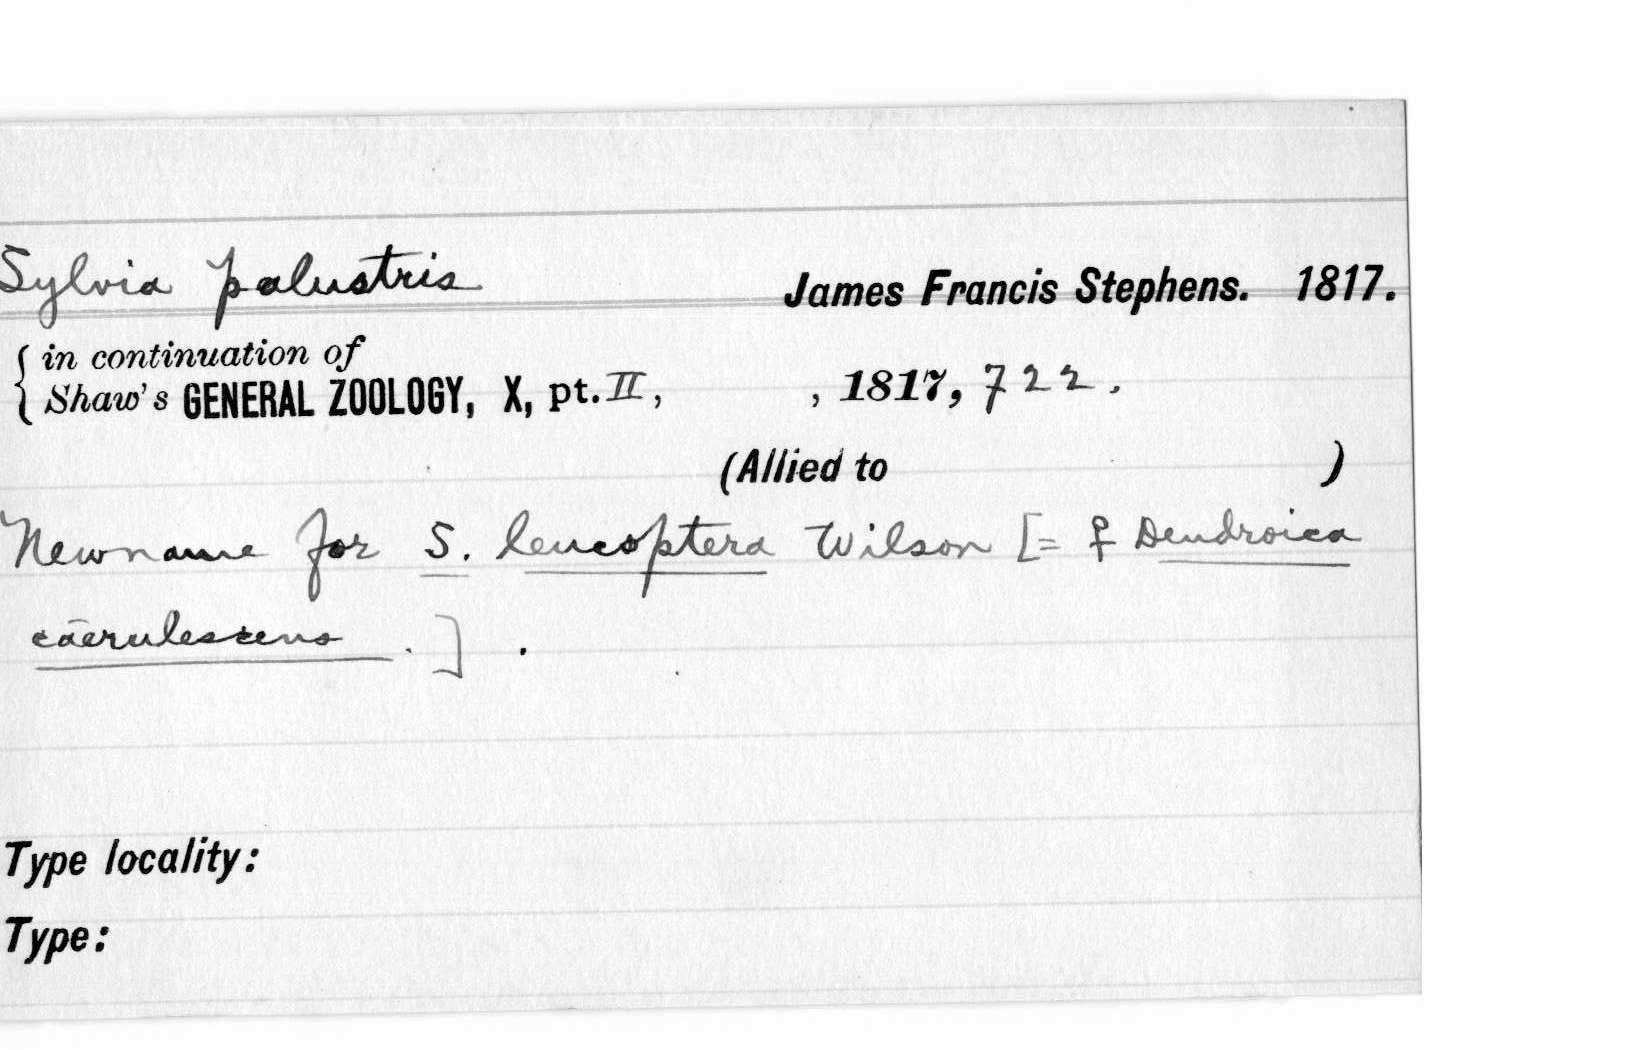 Sylvia palustris James Francis Stephens. 1817.
{ in continuation of
Shaw's GENERAL ZOOLOGY, X, pt. II, , 1817, 722.
(Allied to )
New name for S. leucoptera Wilson [= ♀ Dendroica
caerulescens .] .
Type locality:
Type: